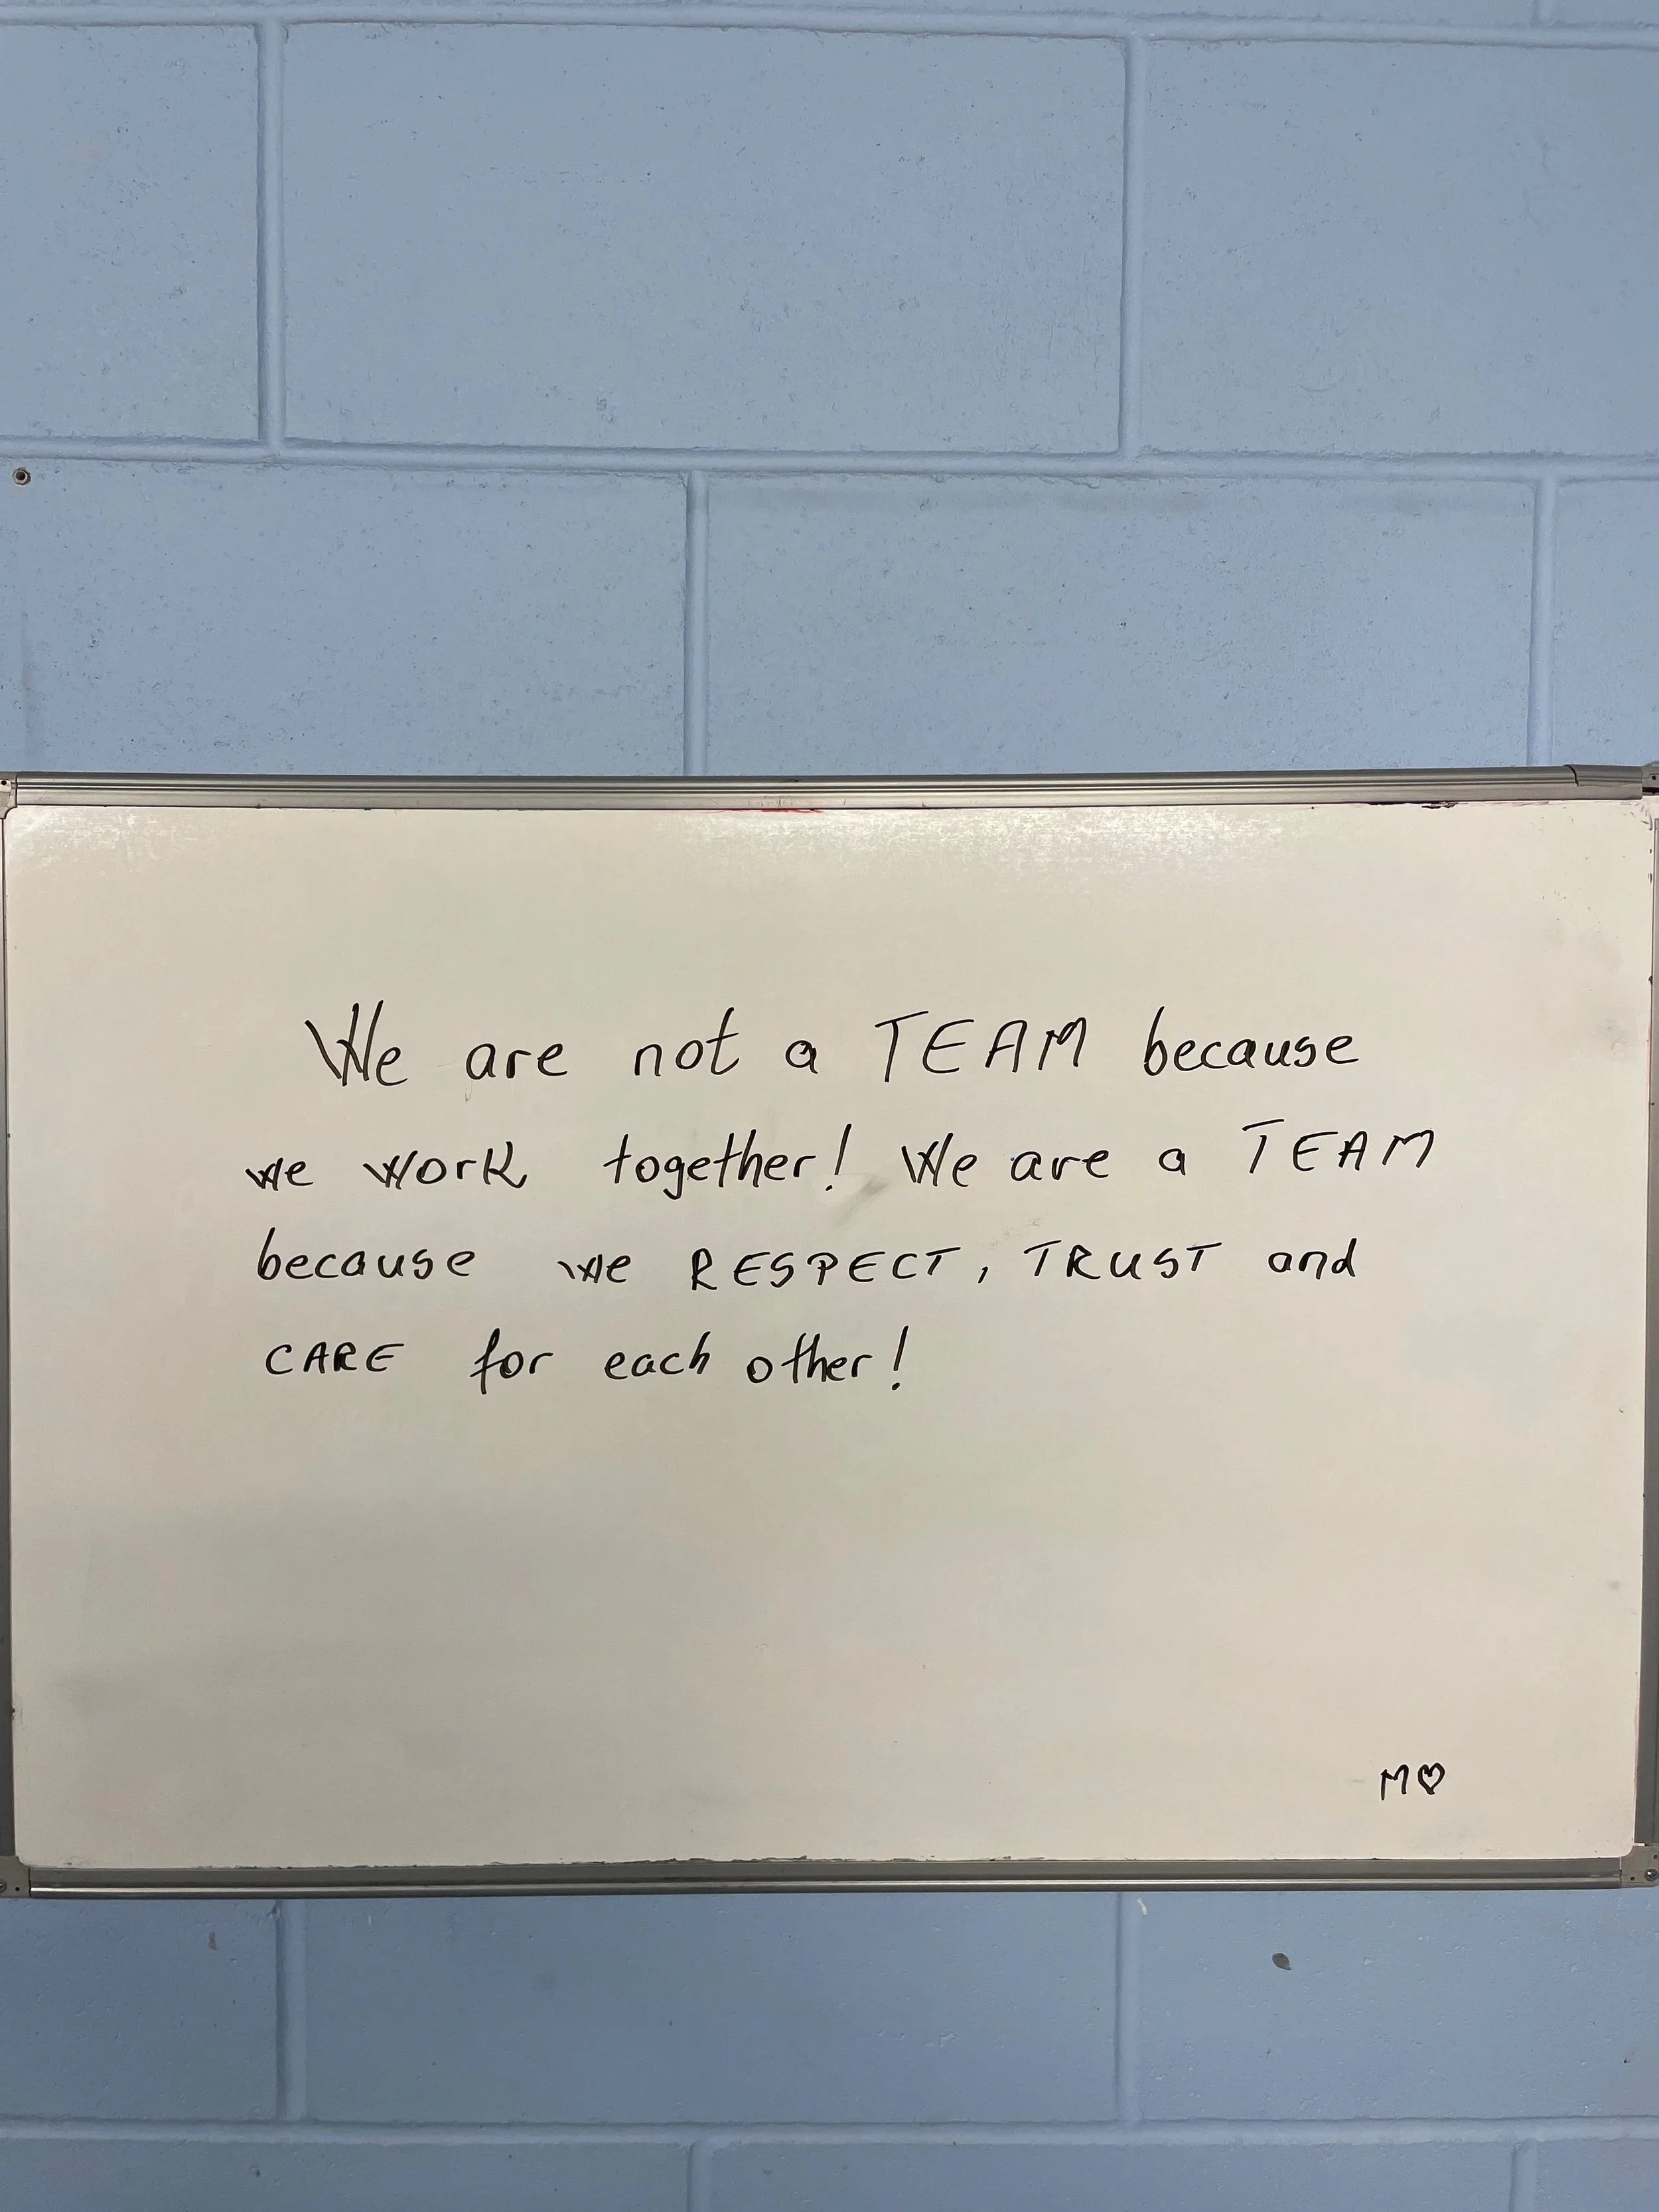 We are not a TEAM because
we work together! We are a TEAM
because we RESPECT, TRUST and
CARE for each other!
M♡